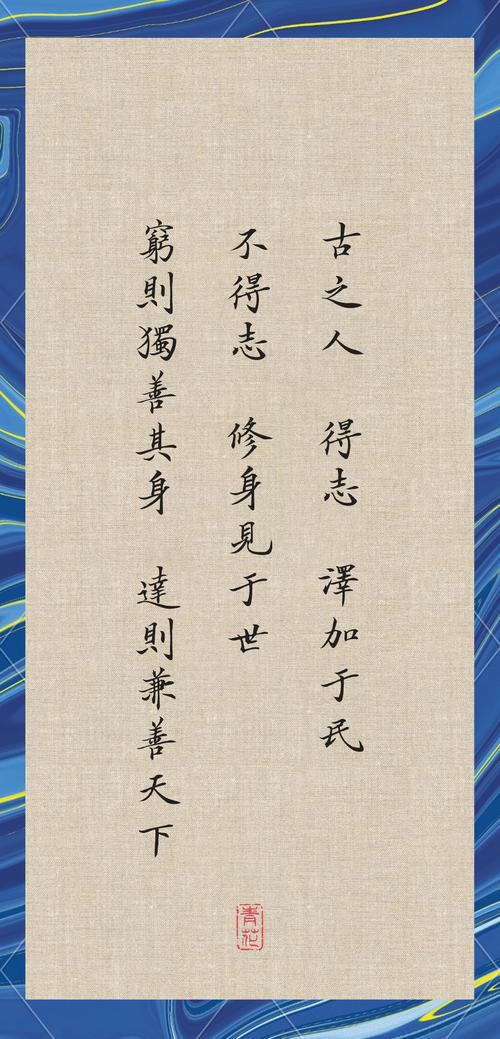 古之人 得志 澤加于民
不得志 修身見于世
窮則獨善其身 達則兼善天下
青花